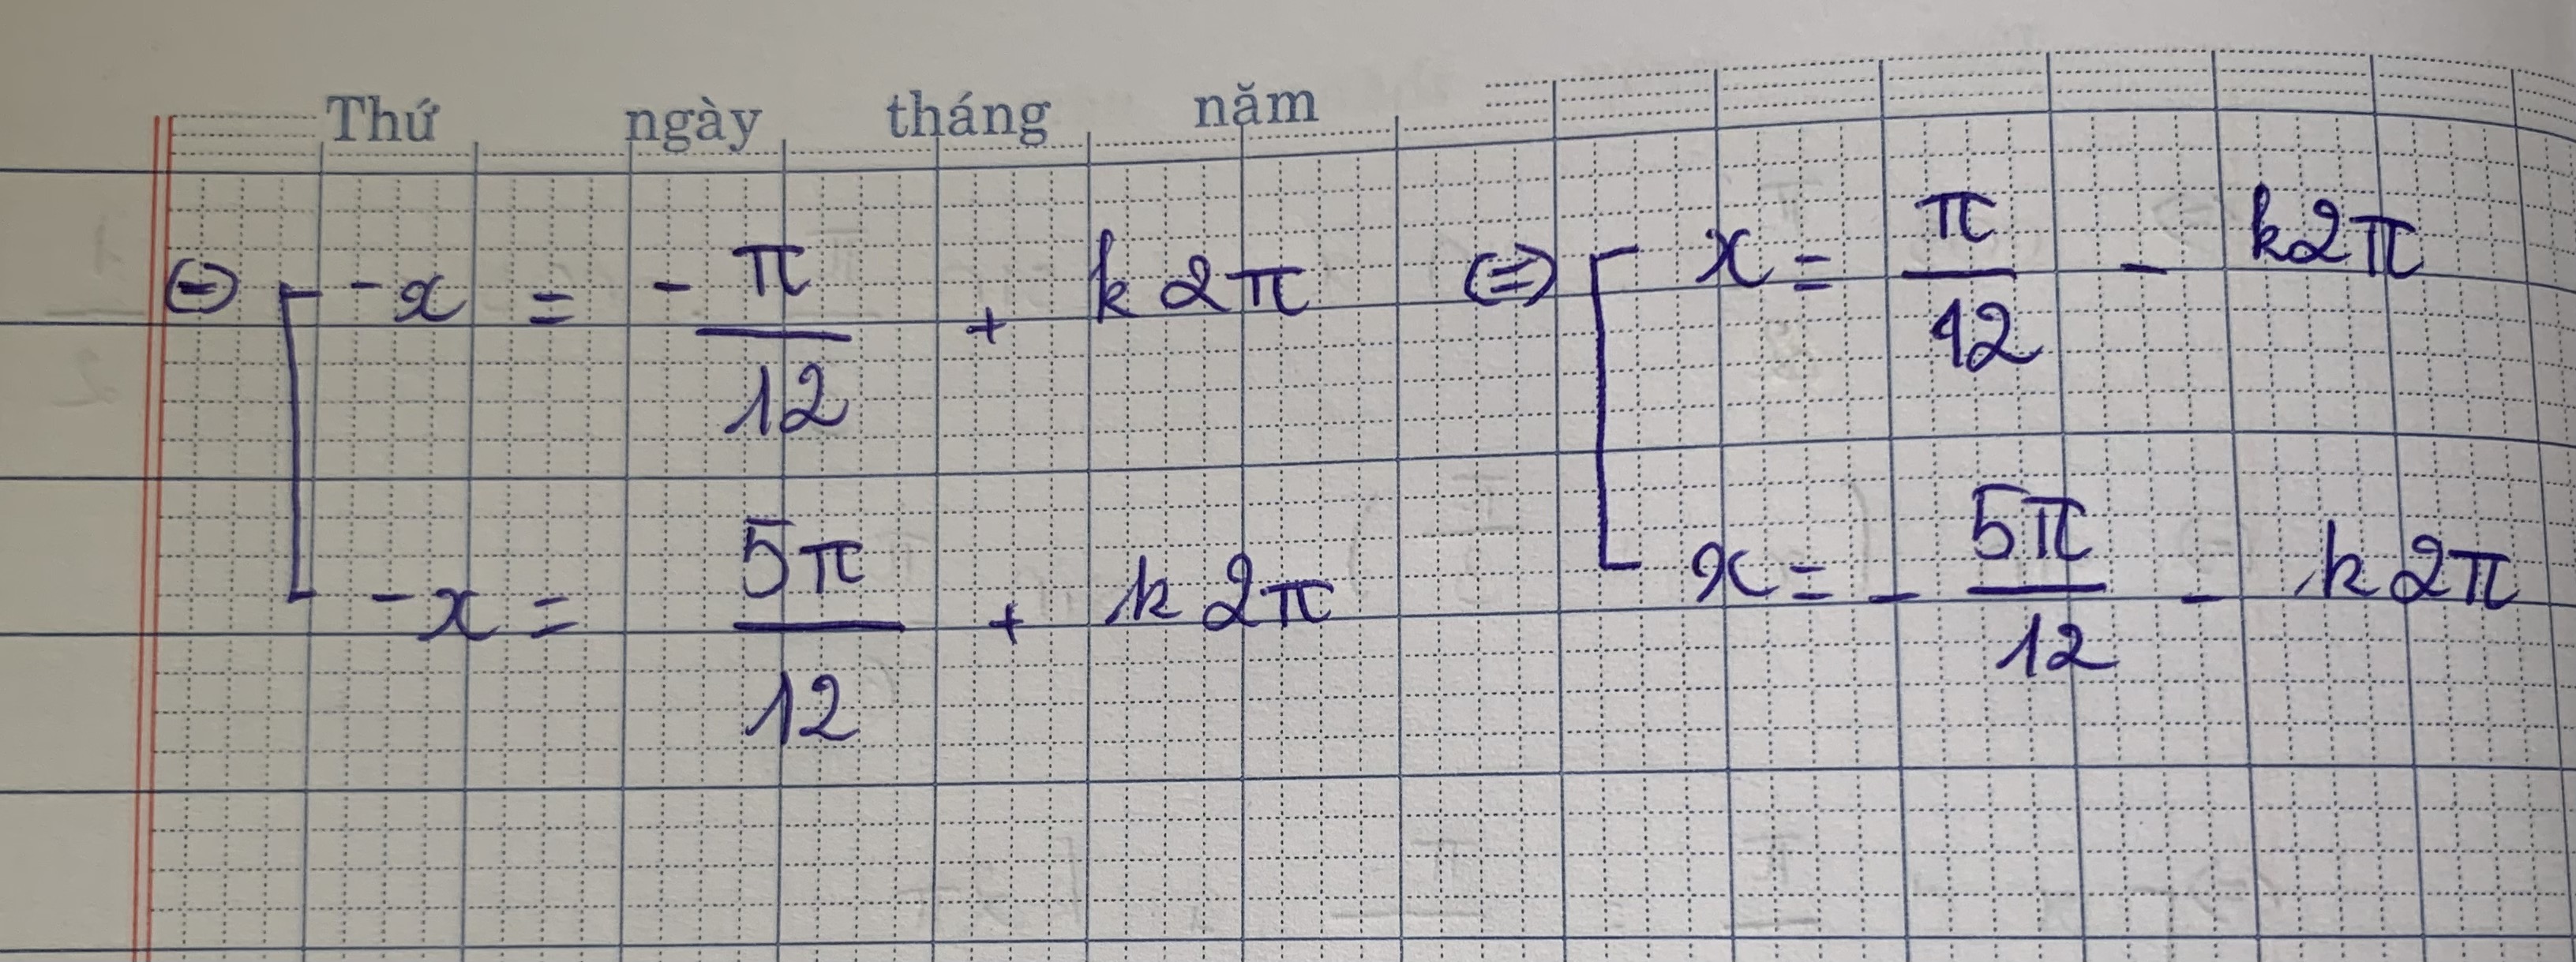 Thứ ngày tháng năm
⇔ [ -x = -π/12 + k2π ⇔ [ x = π/12 - k2π
-x = 5π/12 + k2π x = -5π/12 - k2π